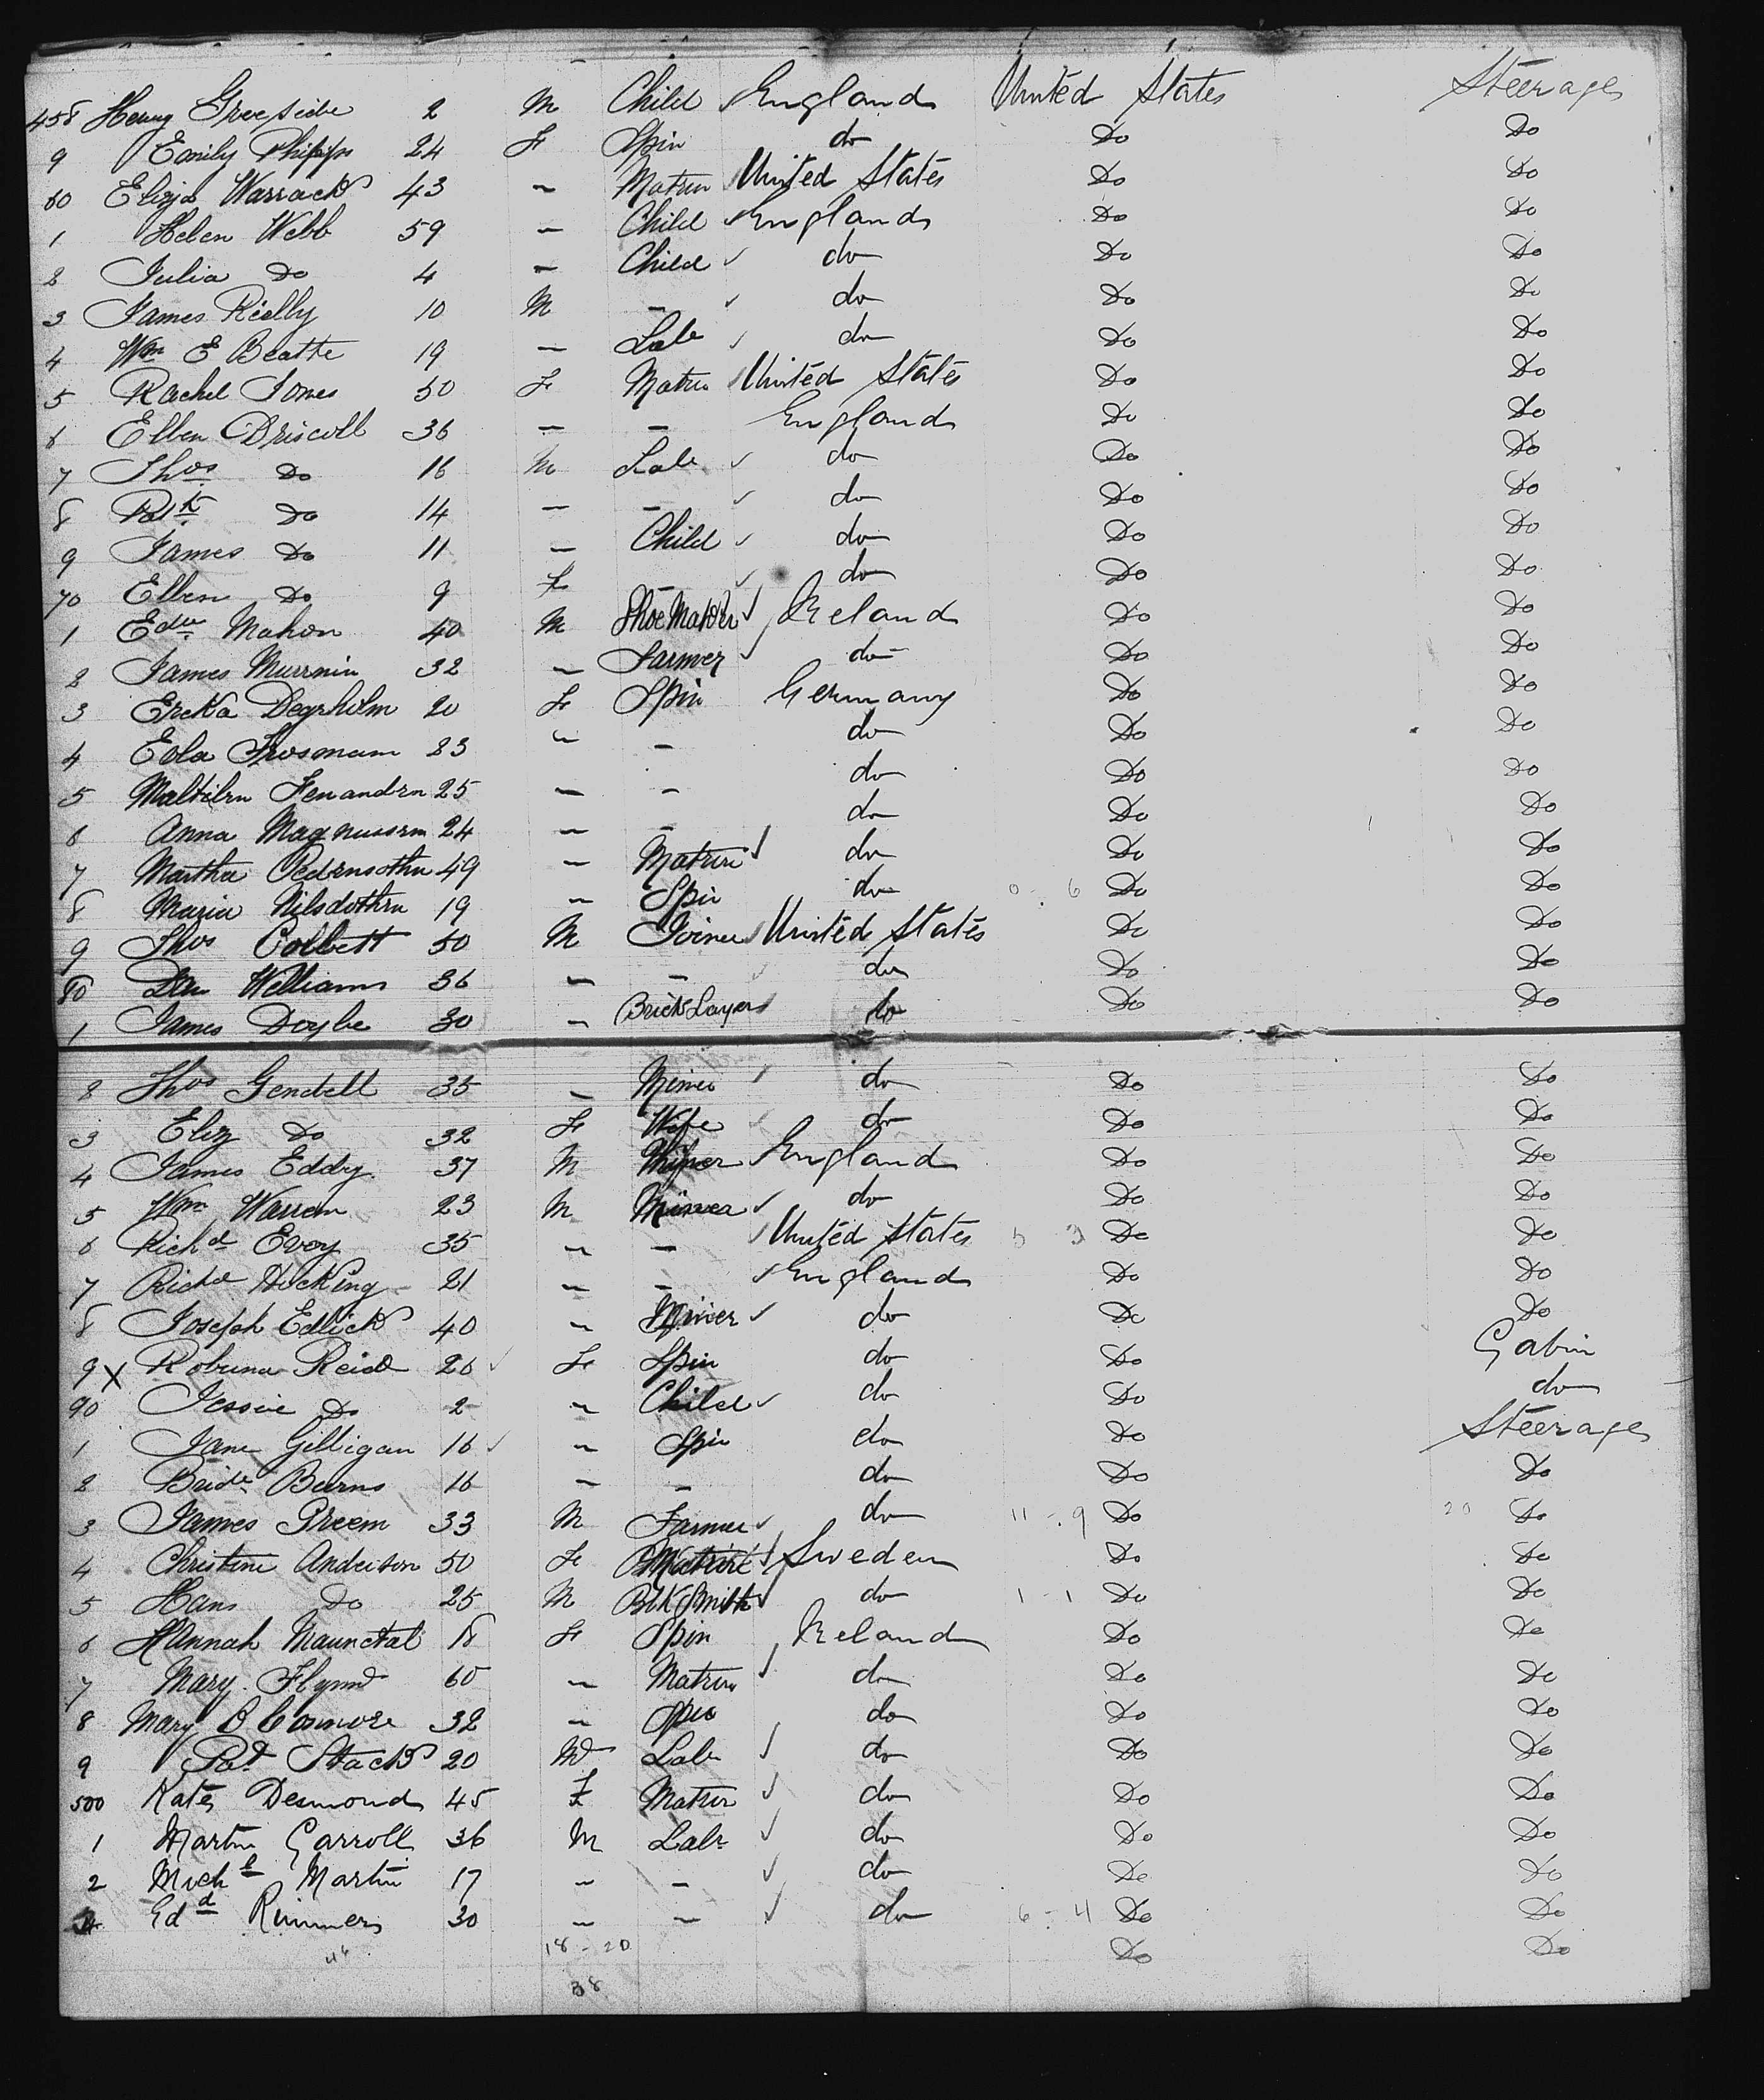 458 Henry Greeside 2 M Child England United States Steerage
9 Emily Phipps 24 F Spin do Do Do
60 Eliza Warrack 43 " Matron United States Do Do
1 Helen Webb 59 " Child England Do Do
2 Julia Do 4 " Child do Do Do
3 James Rielly 10 M " do Do Do
4 Wm E Beatte 19 " Lab do Do Do
5 Rachel Jones 50 F Matrn United States Do Do
6 Ellen Driscoll 36 " " England Do Do
7 Thos Do 16 M Lab do Do Do
8 Patk Do 14 " " do Do Do
9 James Do 11 " Child do Do Do
70 Ellen Do 9 F " do Do Do
1 Edw Mahon 40 M Shoe Maker Ireland Do Do
2 James Murrnin 32 " Farmer do Do Do
3 Ereka Degrholm 20 F Spin Germany Do Do
4 Eola 23 " " do Do Do
5 25 " " do Do Do
6 Anna Magnussrn 24 " " do Do Do
7 Martha 49 " Matrin do Do Do
8 Maria Nilsdothrn 19 " Spin do 0 - 6 Do Do
9 Thos Collett 50 M Joiner United States Do Do
80 Dan Williams 36 " " do Do Do
1 James Doyle 30 " Brick Layer do Do Do
2 Thos Gendell 35 " Miner do Do Do
3 Eliz Do 32 F Wife do Do Do
4 James Eddy 37 M Miner England Do Do
5 Wm Warren 23 M Miner do Do Do
6 Richd Evoy 35 " " United States 5 3 Do Do
7 Richd Hocking 21 " " England Do Do
8 Joseph Edlick 40 " Miner do Do Do
9 X Robrina Reid 20 F Spin do Do Cabin
90 Jessie Do 2 " Child do Do do
1 Jane Gilligan 16 " Spin do Do Steerage
2 Bridt Burns 16 " " do Do Do
3 James Greem 33 M Farmer do 11 - 9 Do 20 Do
4 Christine Anderson 50 F Matrin Sweden Do Do
5 Hans Do 25 M Blk Smith do 1 - 1 Do Do
6 Hannah 18 F Spin Ireland Do Do
7 Mary Flynn 60 " Matrin do Do Do
8 Mary O Connore 32 " Spin do Do Do
9 Pat Stack 20 M Labr do Do Do
500 Kate Desmond 45 F Matrin do Do Do
1 Martin Carroll 36 M Labr do Do Do
2 Michl Martin 17 " " do Do Do
Edd Rimmer 30 " " do 6 - 4 Do Do
46 18 - 20 Do Do
38